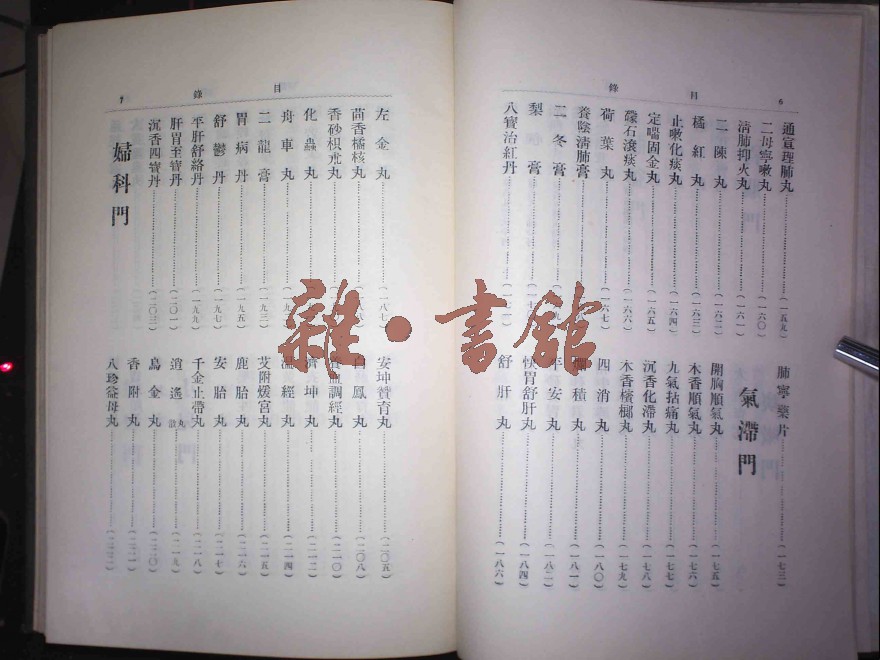 目錄 6
通宣理肺丸……(一五九)
二母寧嗽丸……(一六〇)
清肺抑火丸……(一六一)
二陳丸……(一六二)
橘紅丸……(一六三)
止嗽化痰丸……(一六四)
定喘固金丸……(一六五)
礞石滾痰丸……(一六六)
荷葉丸……(一六七)
養陰清肺膏……
二冬膏……
梨膏……
八寶治紅丹……
肺寧藥片……(一七三)
氣滯門
開胸順氣丸……(一七五)
木香順氣丸……(一七六)
九氣拈痛丸……(一七七)
沉香化滯丸……(一七八)
木香檳榔丸……(一七九)
四消丸……(一八〇)
積丸……(一八一)
平安丸……(一八二)
快胃舒肝丸……(一八四)
舒肝丸……(一八六)
目錄 7
左金丸……(一八七)
茴香橘核丸……
香砂枳朮丸……
化蟲丸……
舟車丸……
二龍膏……(一九三)
胃病丹……(一九五)
舒鬱丹……(一九七)
平肝舒絡丹……(一九九)
肝胃至寶丹……(二〇一)
沉香四寶丹……(二〇三)
婦科門
安坤贊育丸……(二〇五)
白鳳丸……(二〇八)
血調經丸……(二一〇)
坤丸……(二一二)
溫經丸……(二一四)
艾附煖宮丸……(二一五)
鹿胎丸……(二一六)
安胎丸……(二一七)
千金止帶丸……(二一八)
逍遙丸散……(二一九)
烏金丸……(二二〇)
香附丸……(二二一)
八珍益母丸……(二二二)
雜·書館